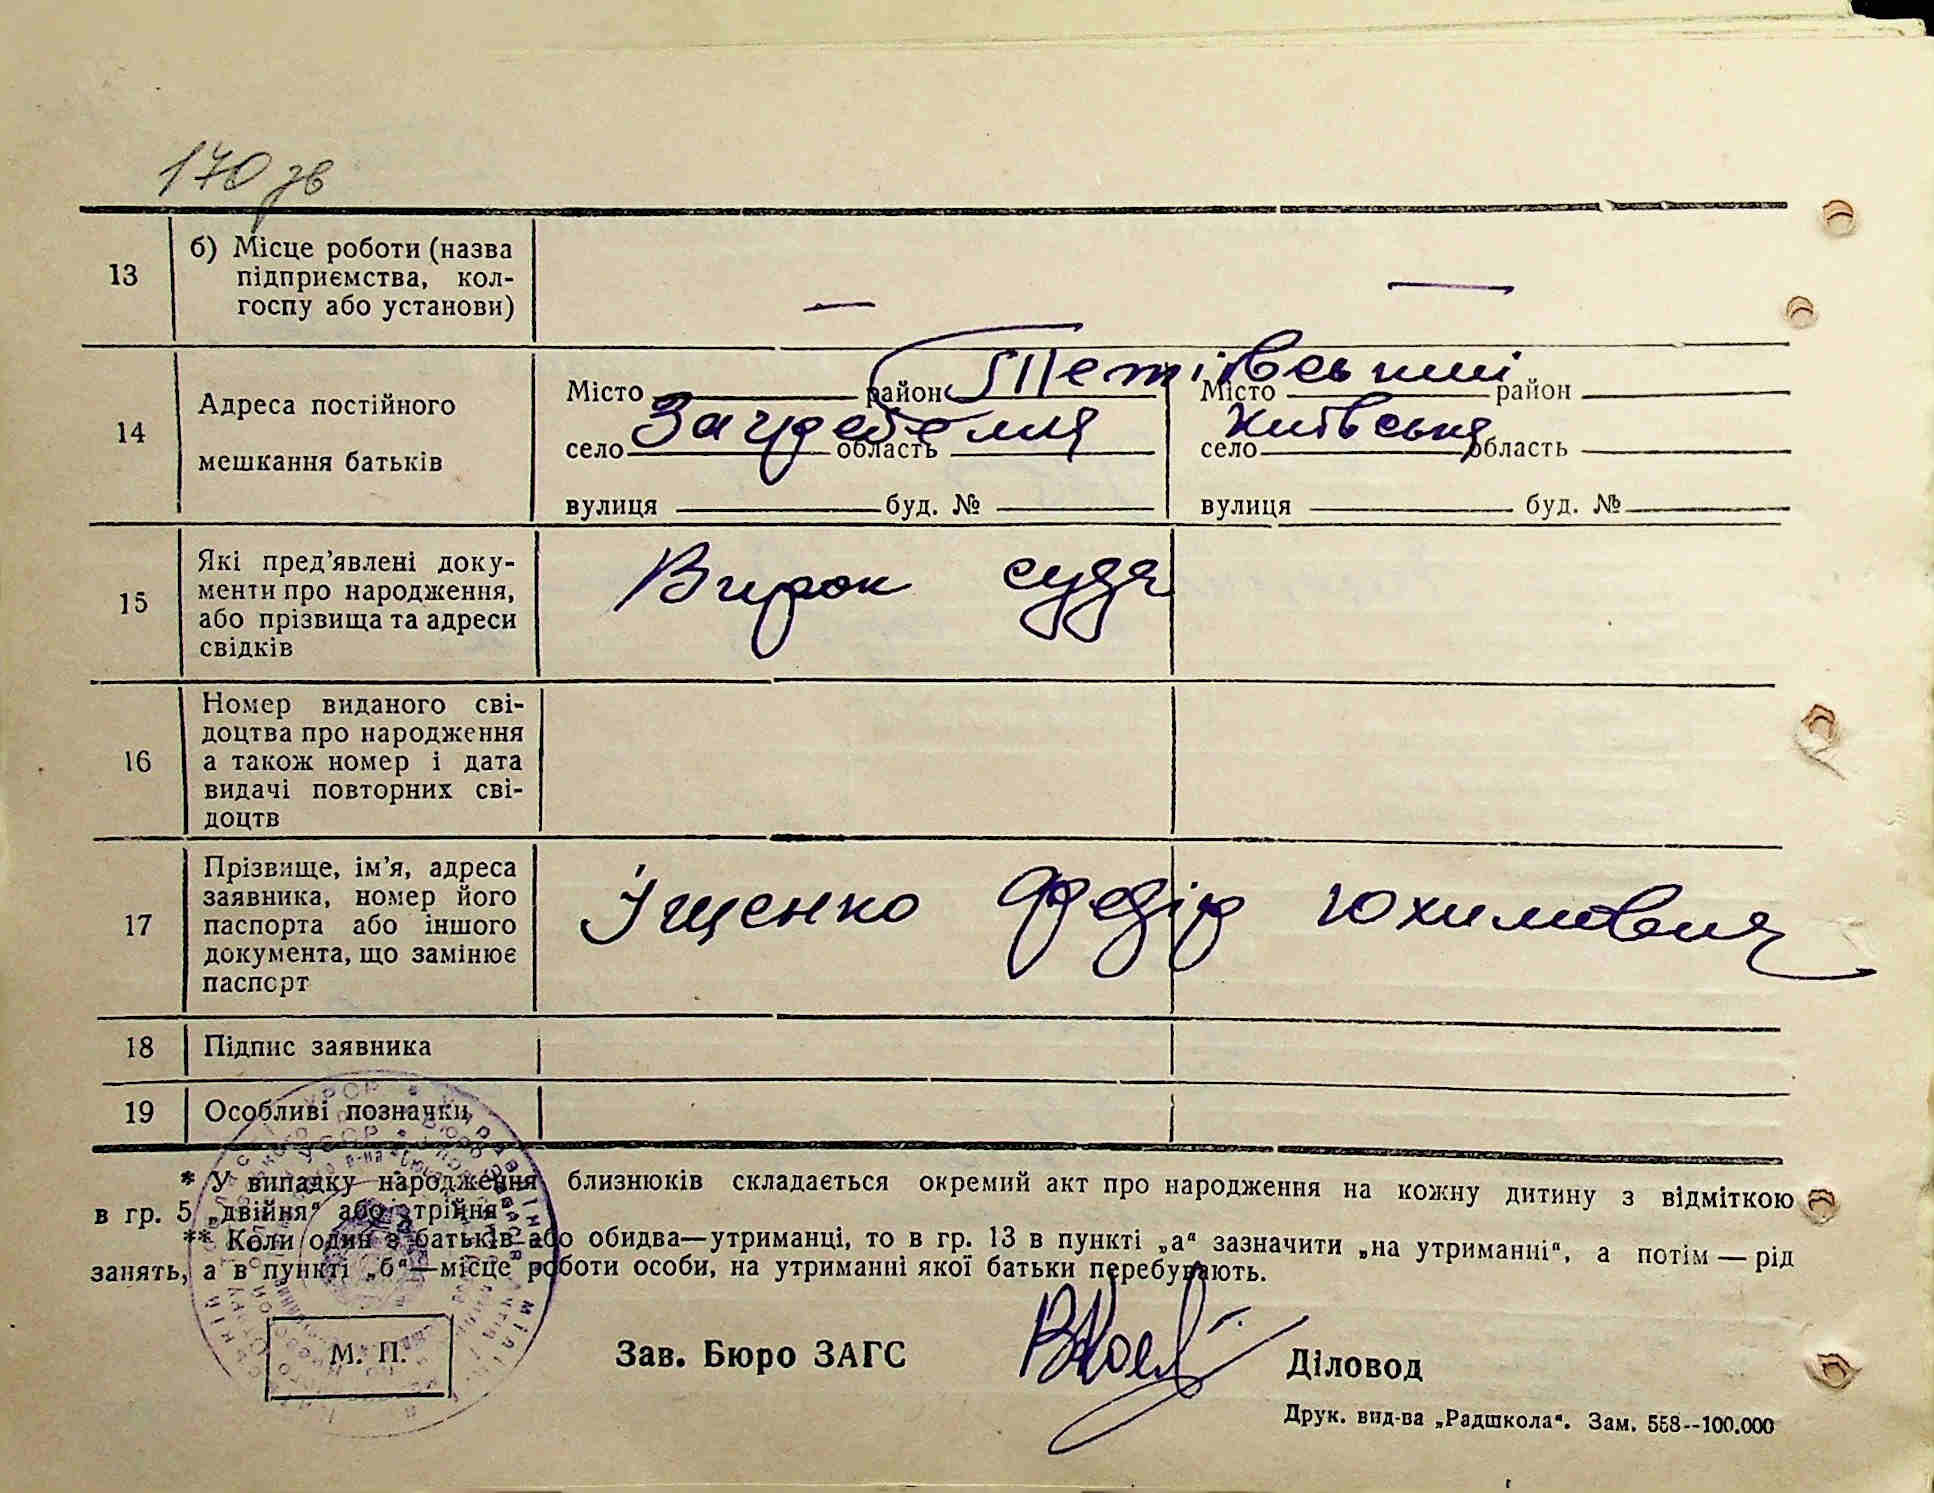 170 зв
13
б) Місце роботи (назва
підприємства, кол-
госпу або установи)
—
—
14
Адреса постійного
мешкання батьків
Місто район Тетівський
село Загребелля область
вулиця буд. №
Місто район
село Київська область
вулиця буд. №
15
Які пред'явлені доку-
менти про народження,
або прізвища та адреси
свідків
Вирок суда
16
Номер виданого сві-
доцтва про народження
а також номер і дата
видачі повторних сві-
доцтв
17
Прізвище, ім'я, адреса
заявника, номер його
паспорта або іншого
документа, що замінює
паспорт
Іщенко Федір Юхимович
18
Підпис заявника
19
Особливі позначки
* У випадку народження близнюків складається окремий акт про народження на кожну дитину з відміткою
в гр. 5 „двійня“ або „трійня“
** Коли один з батьків або обидва—утриманці, то в гр. 13 в пункті „а“ зазначити „на утриманні“, а потім — рід
занять, а в пункті „б“—місце роботи особи, на утриманні якої батьки перебувають.
М. П.
Зав. Бюро ЗАГС
Діловод
Друк. вид-ва „Радшкола“. Зам. 558--100.000